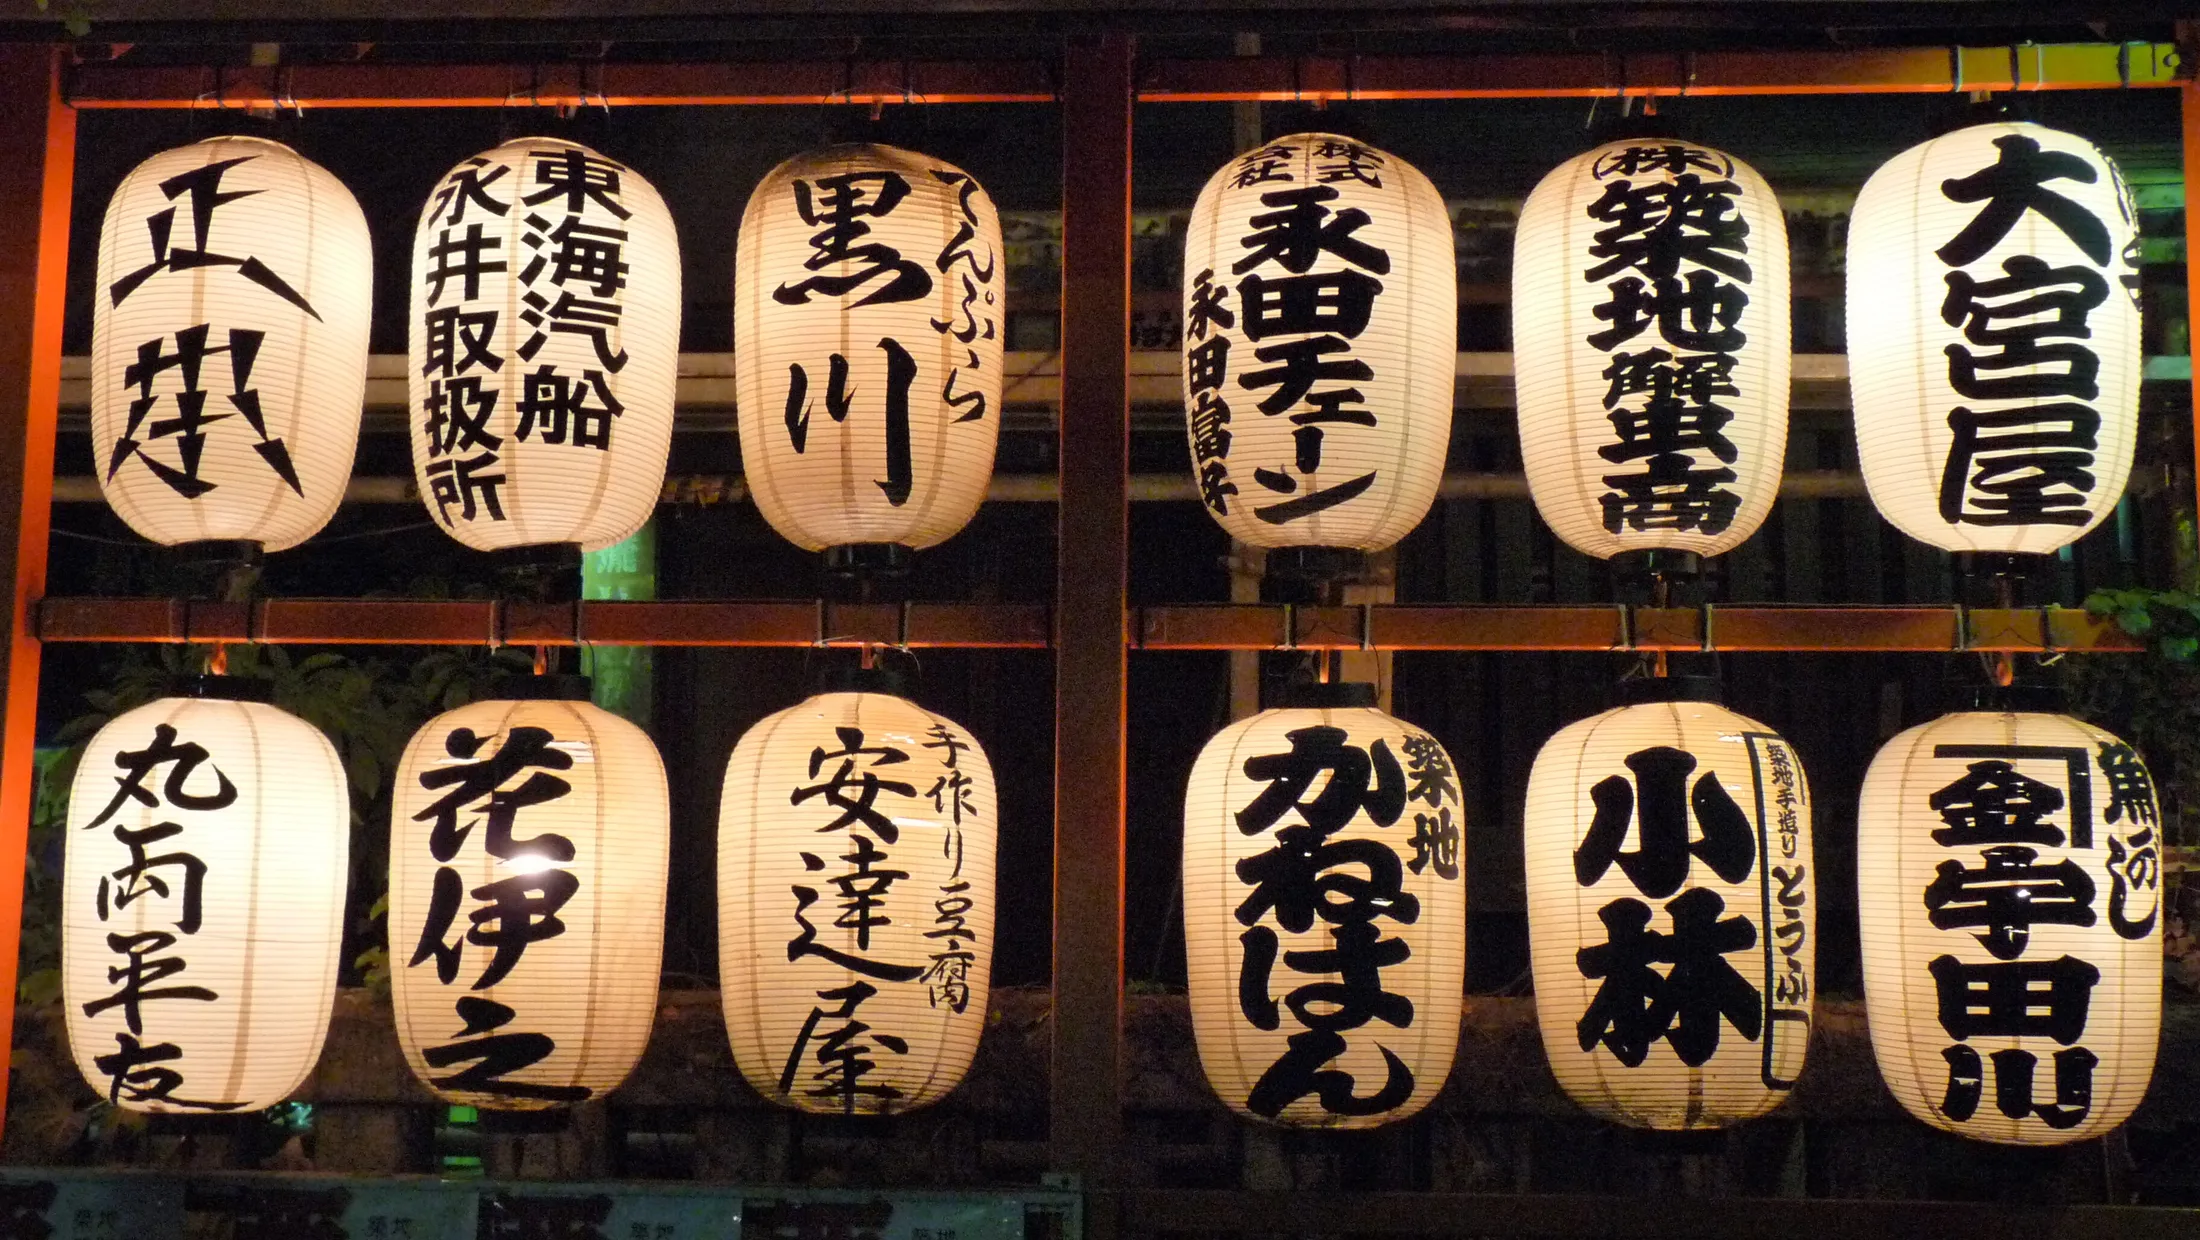 正本
東海汽船
永井取扱所
てんぷら
黒川
株式会社
永田チェーン
永田富子
(株)
築地蟹商
大宮屋
丸両平友
花伊之
手作り豆腐
安達屋
築地
かねはん
築地手造りとうふ
小林
魚のし
金宇田川
築地
築地
築地
築地